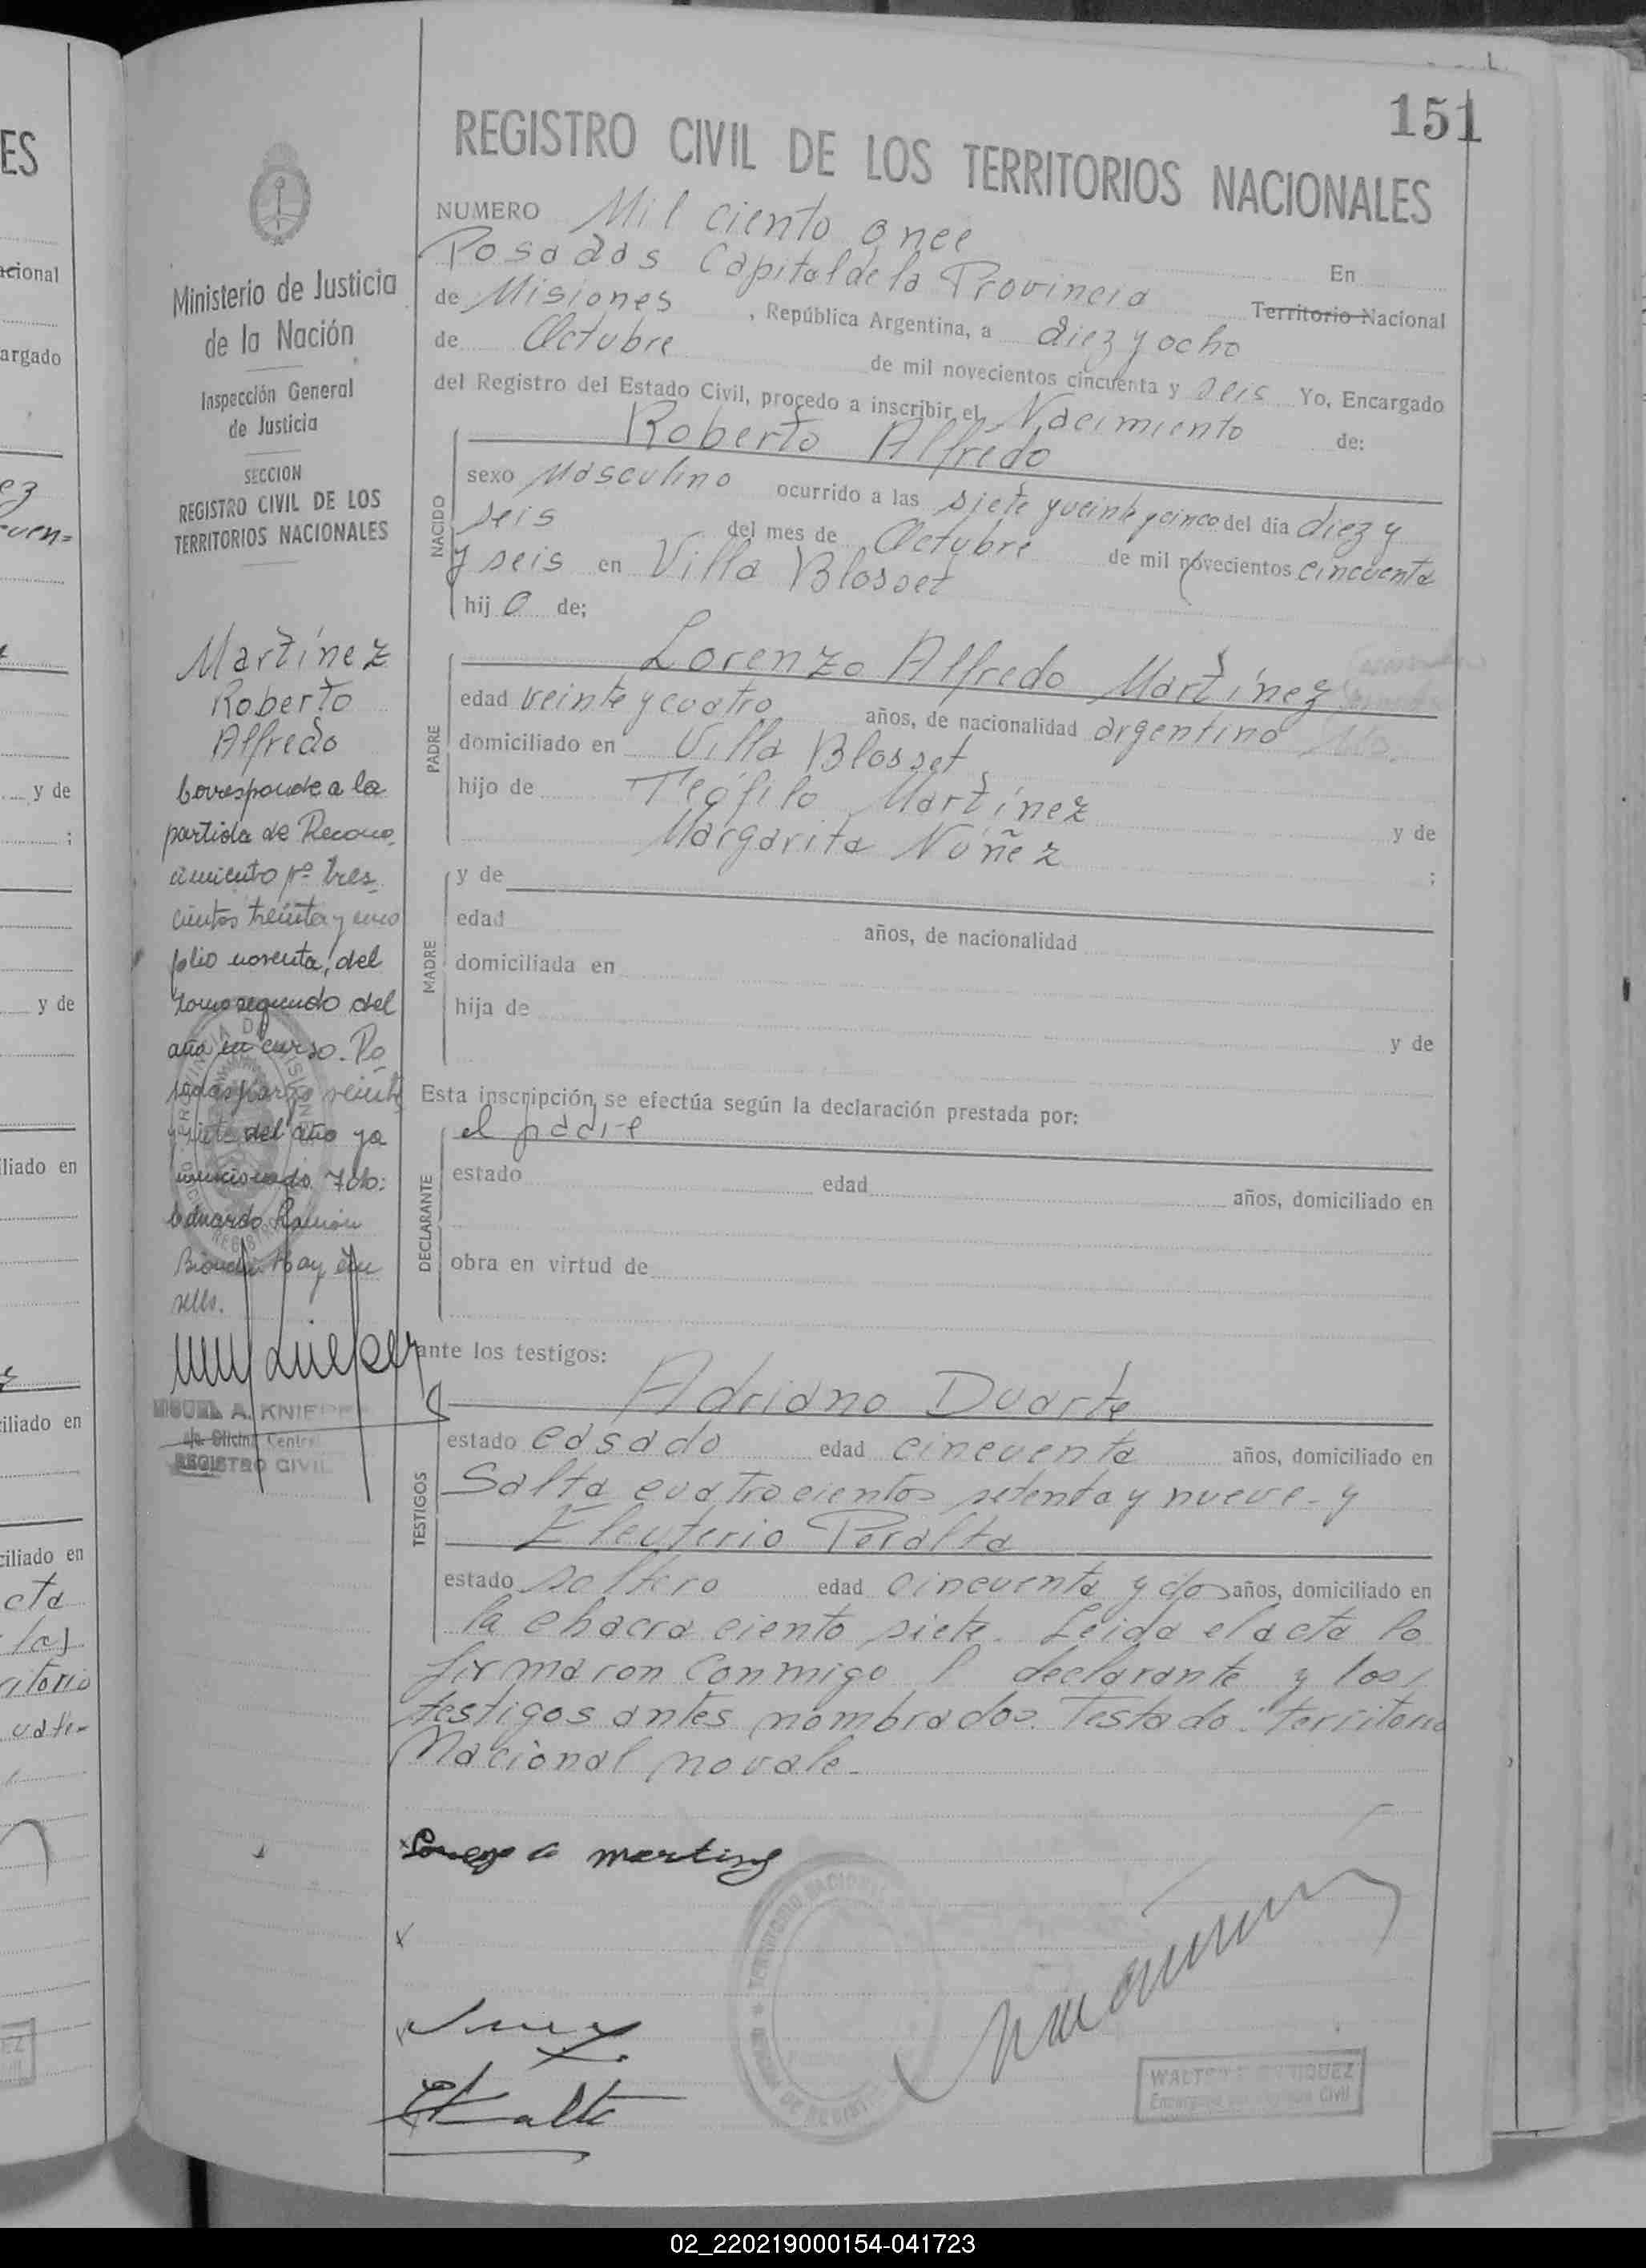 151
REGISTRO CIVIL DE LOS TERRITORIOS NACIONALES
NUMERO Mil ciento once
En
Posadas Capital de la Provincia
Territorio Nacional
de Misiones, República Argentina, a diez y ocho
de Octubre de mil novecientos cincuenta y seis Yo, Encargado
del Registro del Estado Civil, procedo a inscribir el Nacimiento de:
NACIDO
Roberto Alfredo
sexo Masculino ocurrido a las siete y veinte y cinco del día diez y
seis del mes de Octubre de mil novecientos cincuenta
y seis en Villa Blosset
hijo de;
PADRE
Lorenzo Alfredo Martínez
edad veinte y cuatro años, de nacionalidad argentino
domiciliado en Villa Blosset
hijo de Teófilo Martínez
y de
Margarita Núñez ;
MADRE
y de
edad años, de nacionalidad
domiciliada en
hija de
y de
Esta inscripción se efectúa según la declaración prestada por:
DECLARANTE
el padre
estado edad años, domiciliado en
obra en virtud de
ante los testigos:
TESTIGOS
Adriano Duarte
estado casado edad cincuenta años, domiciliado en
Salta cuatrocientos setenta y nueve - y
Eleuterio Peralta
estado soltero edad cincuenta y dos años, domiciliado en
la chacra ciento siete. Leida el acta la
firmaron conmigo l declarante y los
testigos antes nombrados. Testado: "territorio
Nacional no vale.
Ministerio de Justicia
de la Nación
Inspección General
de Justicia
SECCION
REGISTRO CIVIL DE LOS
TERRITORIOS NACIONALES
Martínez
Roberto
Alfredo
Corresponde a la
partida de Recono
cimiento nº tres
cientos treinta y
folio noventa, del
tomo segundo del
año en curso. Po
sadas, marzo veinte
y siete del año ya
mencionado. Fdo:
Eduardo Ramón
Bianchi. Hay un
sello.
MIGUEL A. KNIE
Oficina Central
REGISTRO CIVIL
WALTER
Civil
ES
y de
y de
iliado en
iliado en
ciliado en
02_220219000154-041723